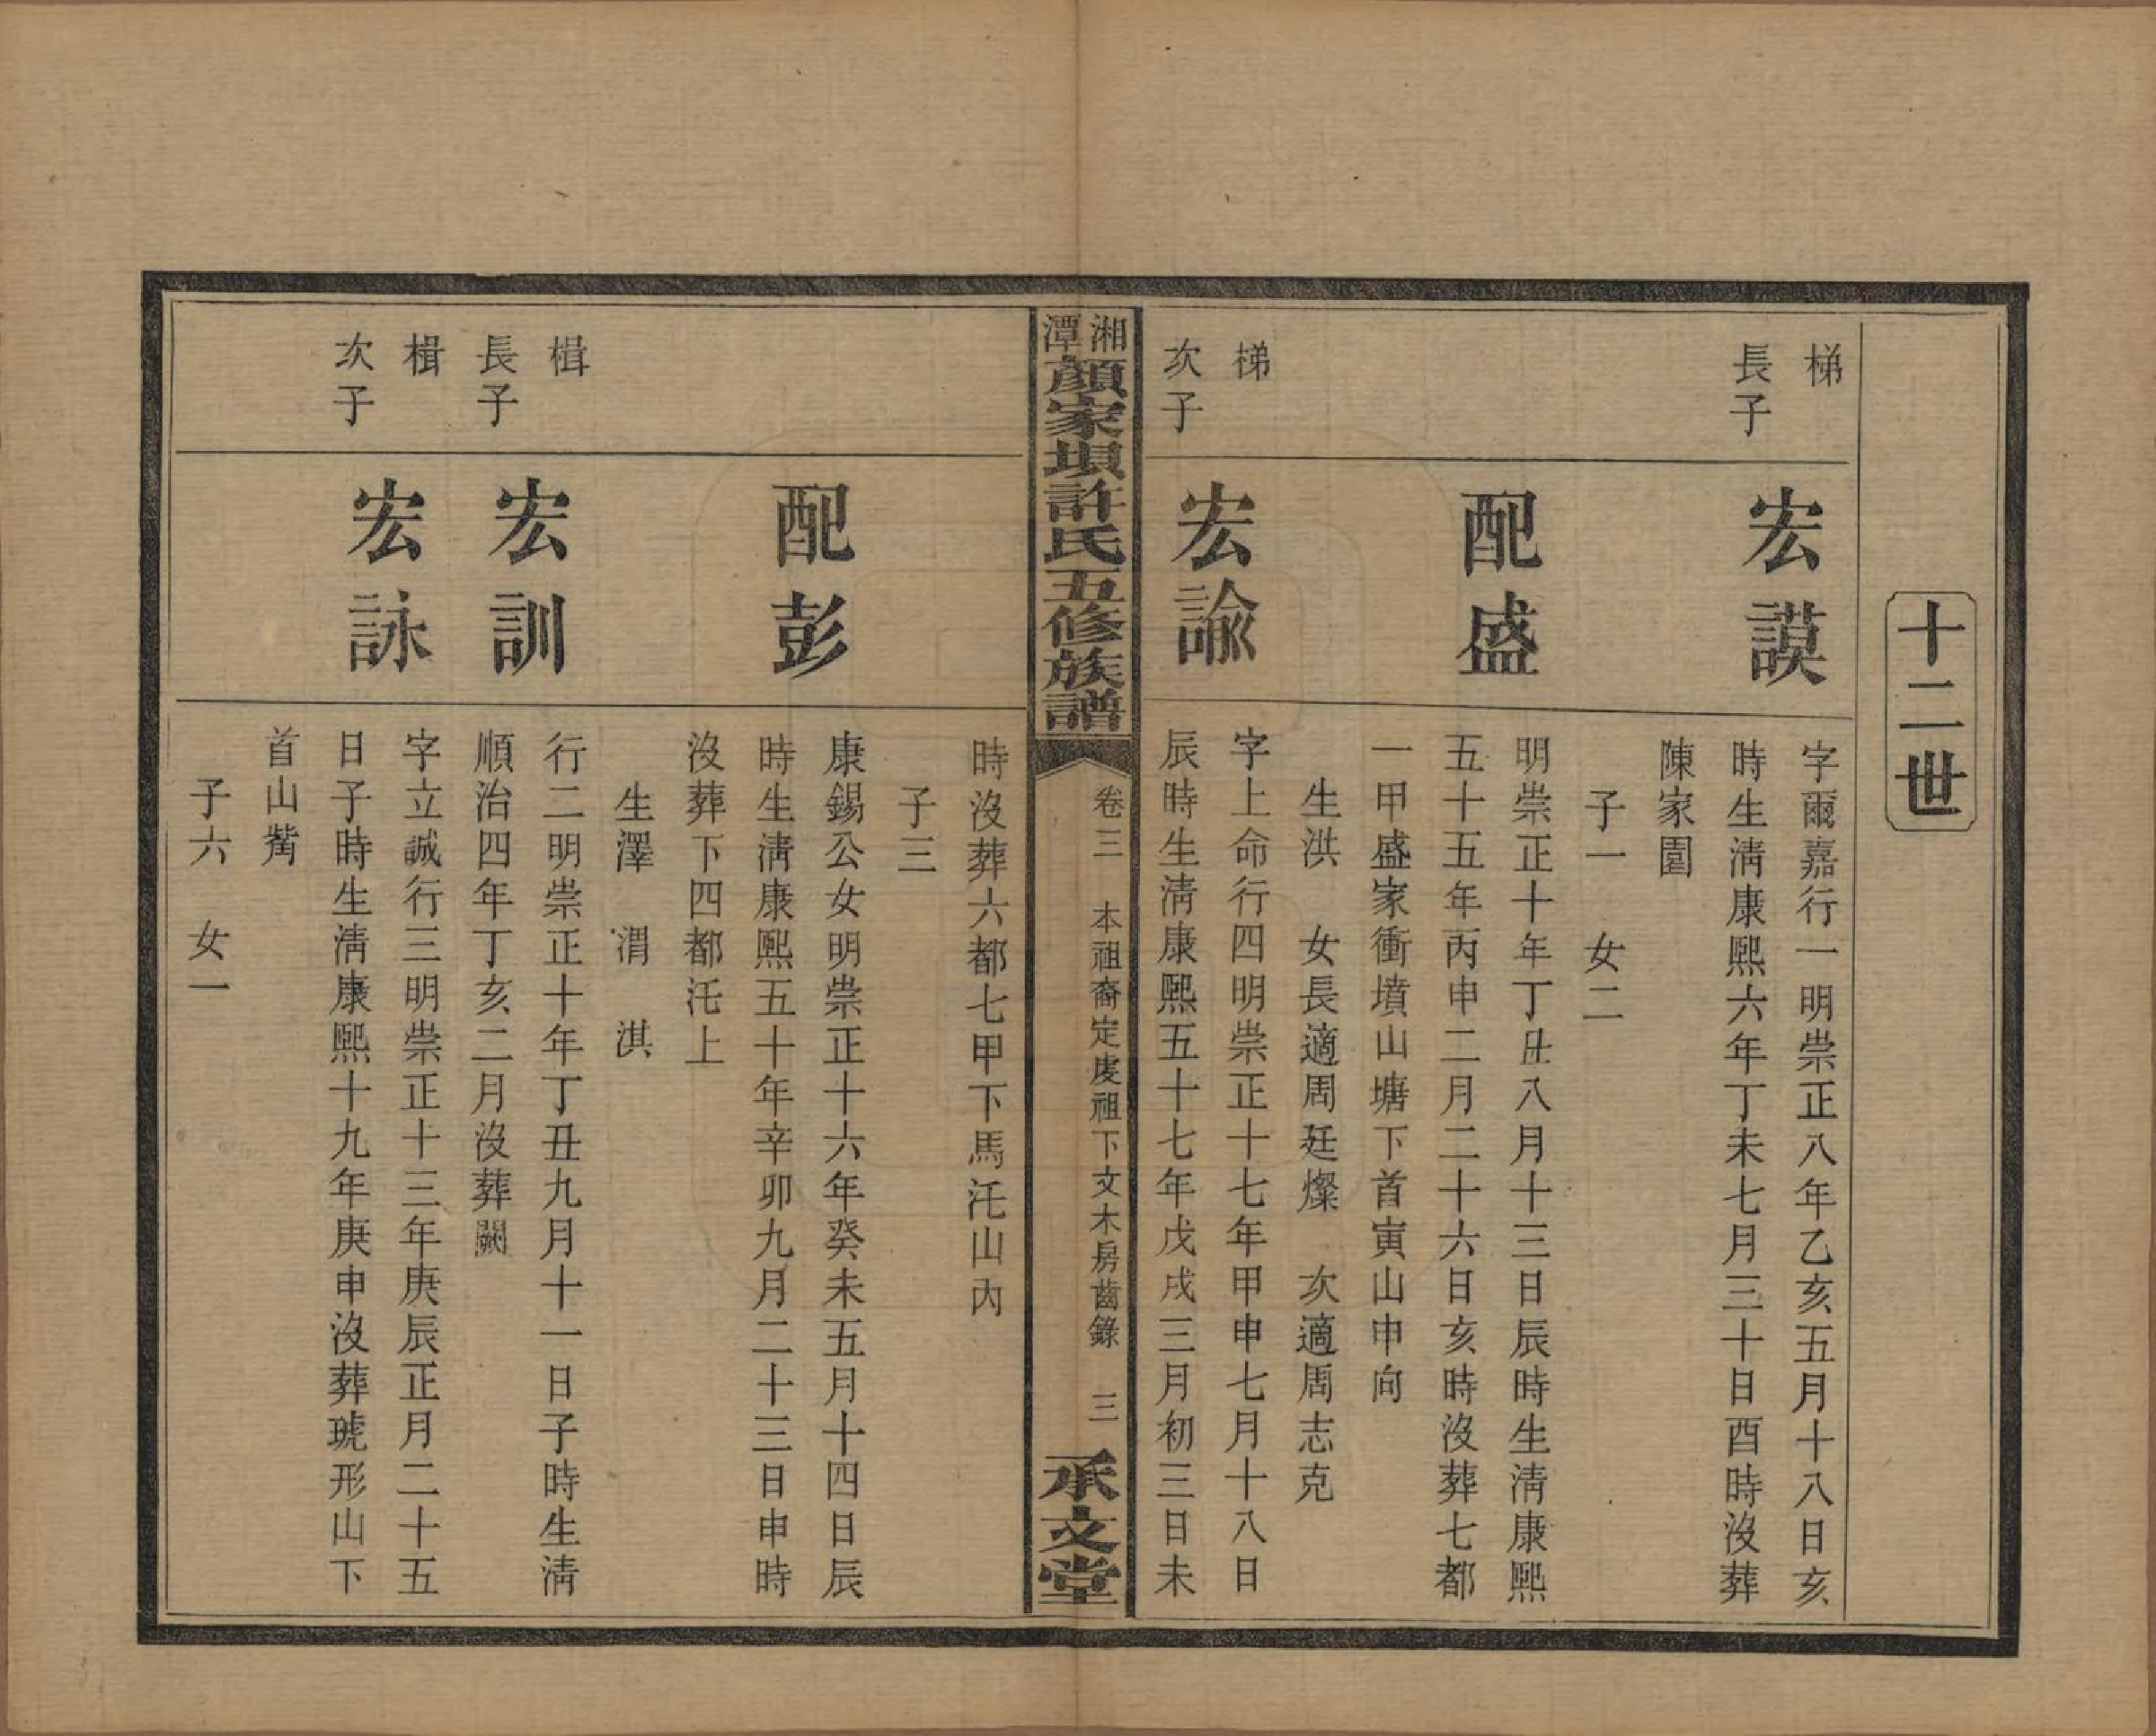 十二世
梯
長子
宏謨
字爾嘉行一明崇正八年乙亥五月十八日亥
時生淸康熙六年丁未七月三十日酉時沒葬
陳家園
子一　女二
配盛
明崇正十年丁丑八月十三日辰時生淸康熙
五十五年丙申二月二十六日亥時沒葬七都
一甲盛家衝墳山塘下首寅山申向
生洪　女長適周廷燦　次適周志克
梯
次子
宏諭
字上命行四明崇正十七年甲申七月十八日
辰時生淸康熙五十七年戊戌三月初三日未
湘潭顏家埧許氏五修族譜
卷三　本祖裔定虔祖下文木房齒錄　三
承文堂
時沒葬六都七甲下馬汑山內
子三
配彭
康錫公女明崇正十六年癸未五月十四日辰
時生淸康熙五十年辛卯九月二十三日申時
沒葬下四都汑上
生澤　渭　淇
楫
長子
宏訓
行二明崇正十年丁丑九月十一日子時生淸
順治四年丁亥二月沒葬闕
楫
次子
宏詠
字立誠行三明崇正十三年庚辰正月二十五
日子時生淸康熙十九年庚申沒葬琥形山下
首山觜
子六　女一